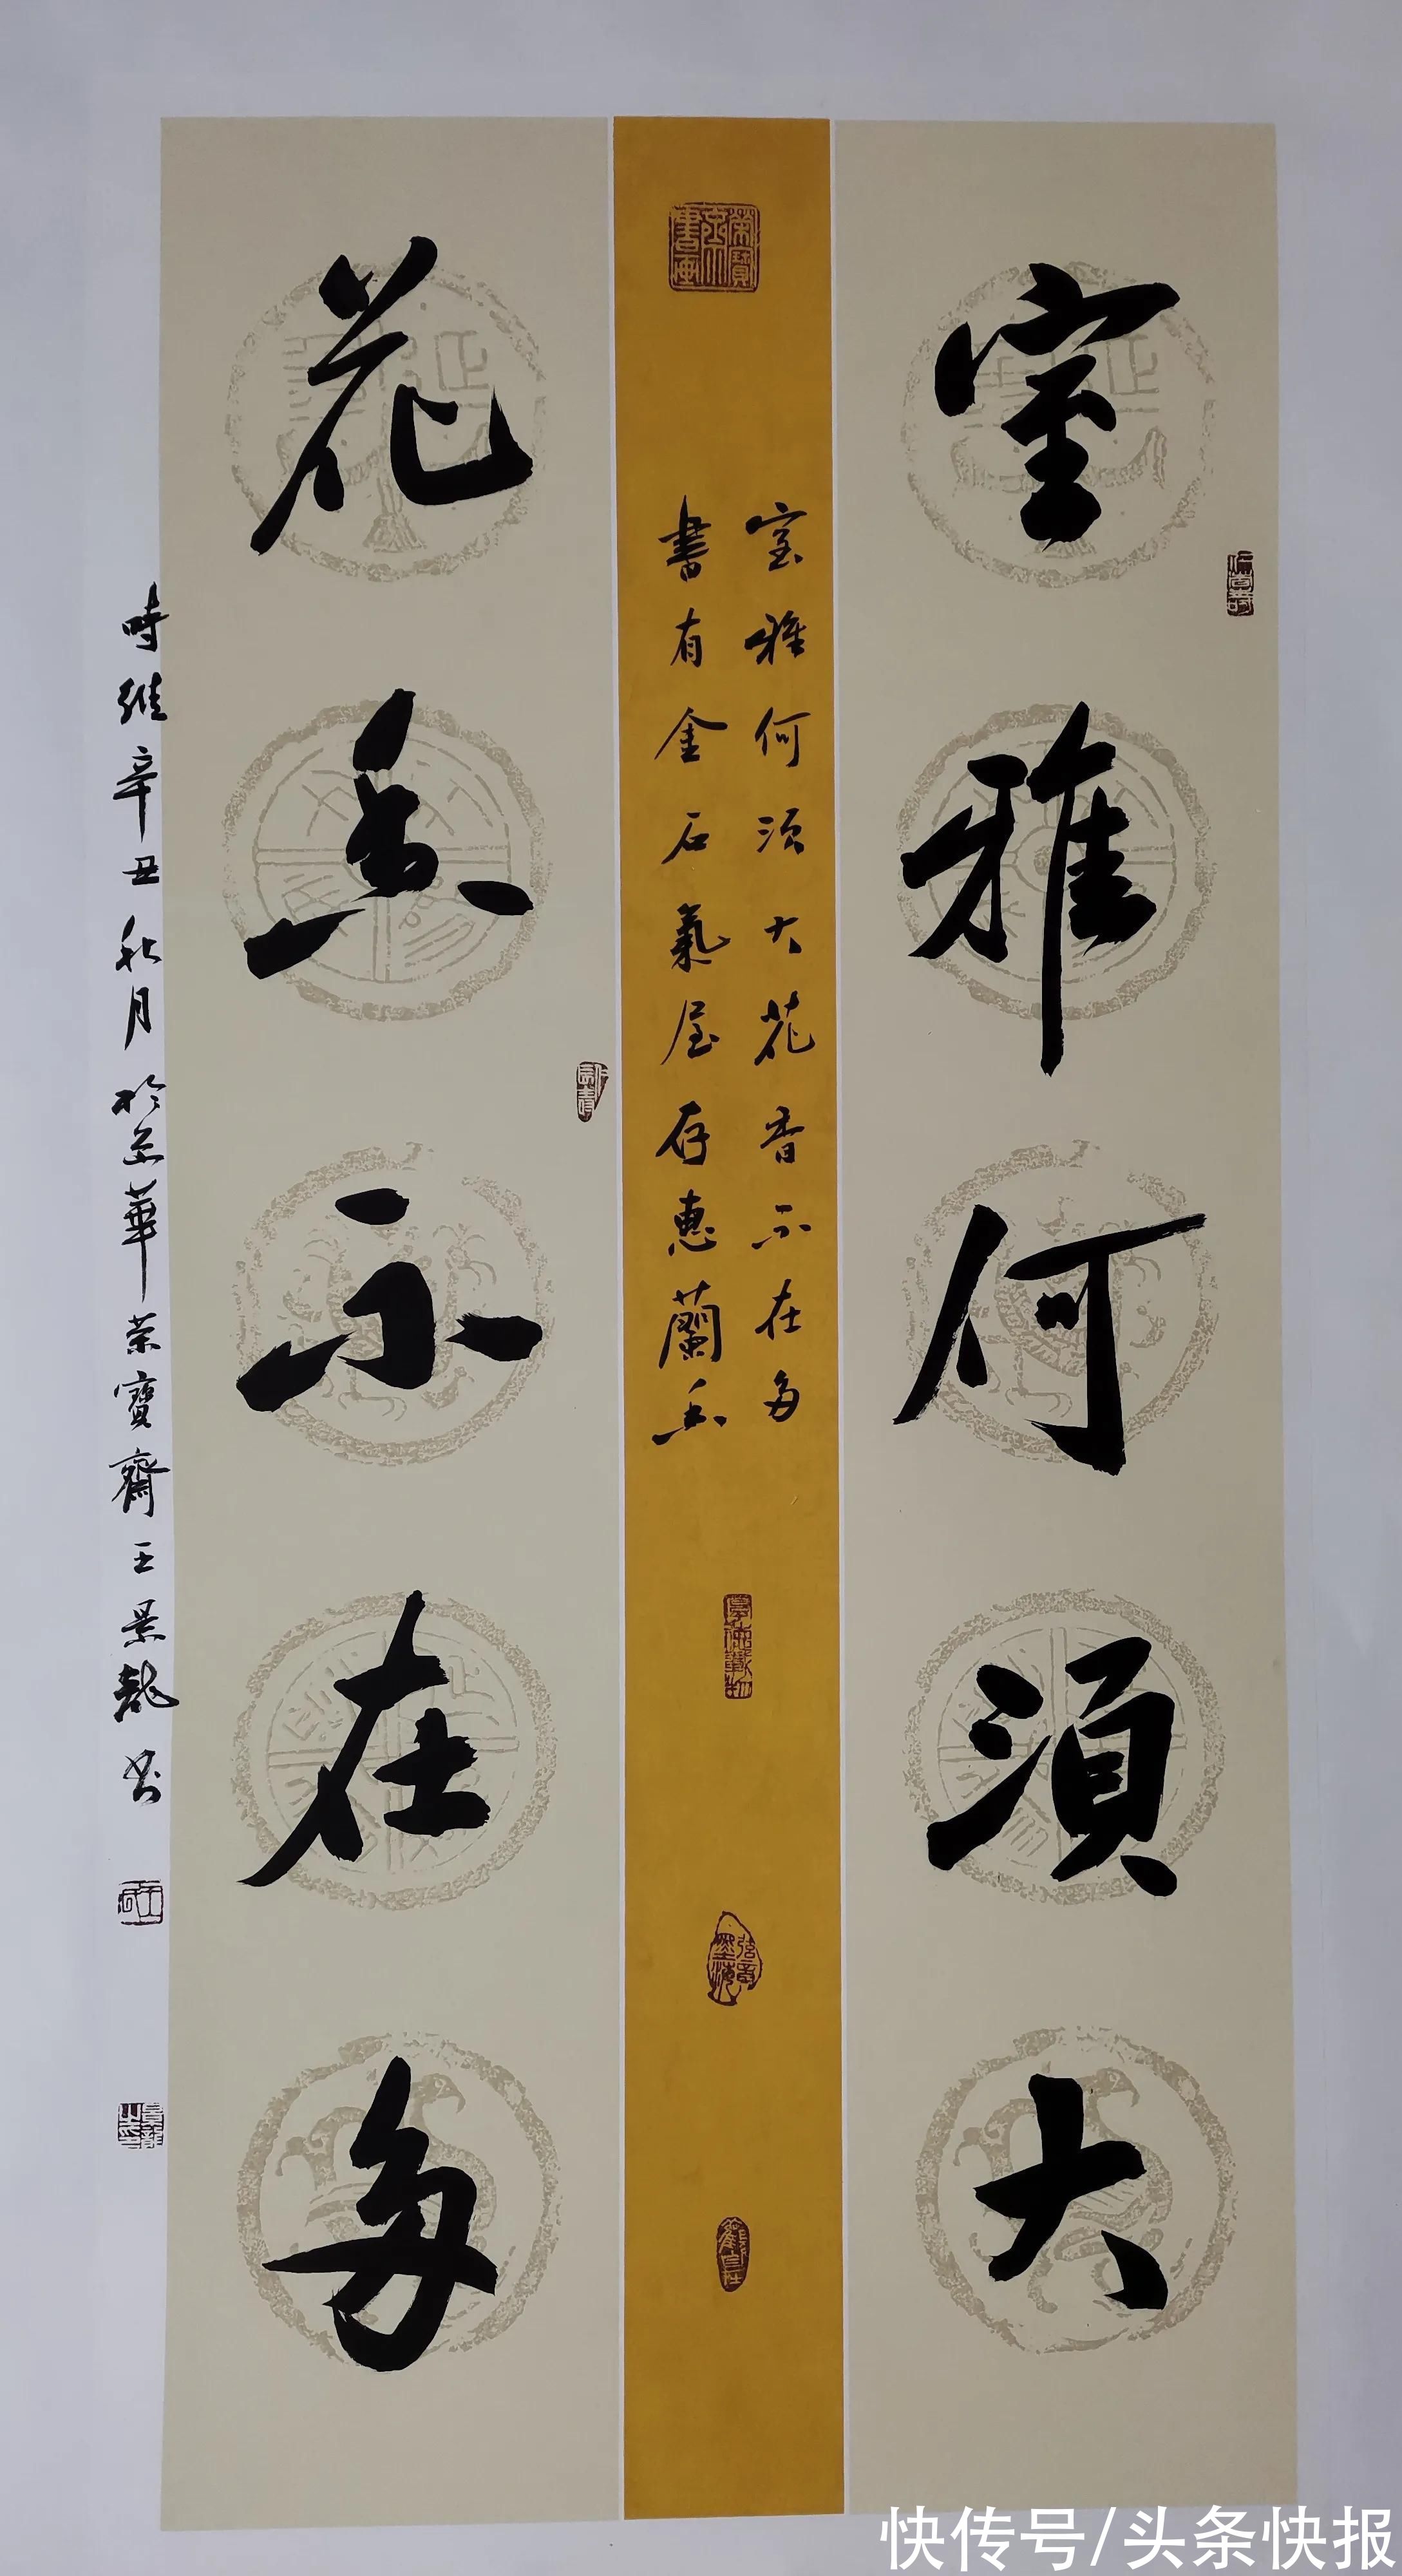 室雅何湏大
室雅何须大花香不在多
書有金石氣屋存惠蘭香
厚德載物
觀自在
花香不在多
時維辛丑秋月於京華荣寶齋王景龍书
快传号/头条快报